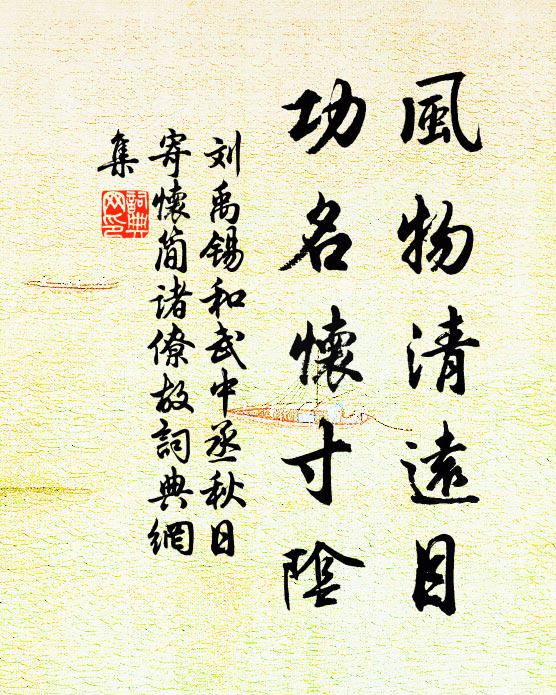 風物清遠目
功名懷寸陰
刘禹錫和武中丞秋日
寄懷简诸僚故詞典網
集
詞典
网印